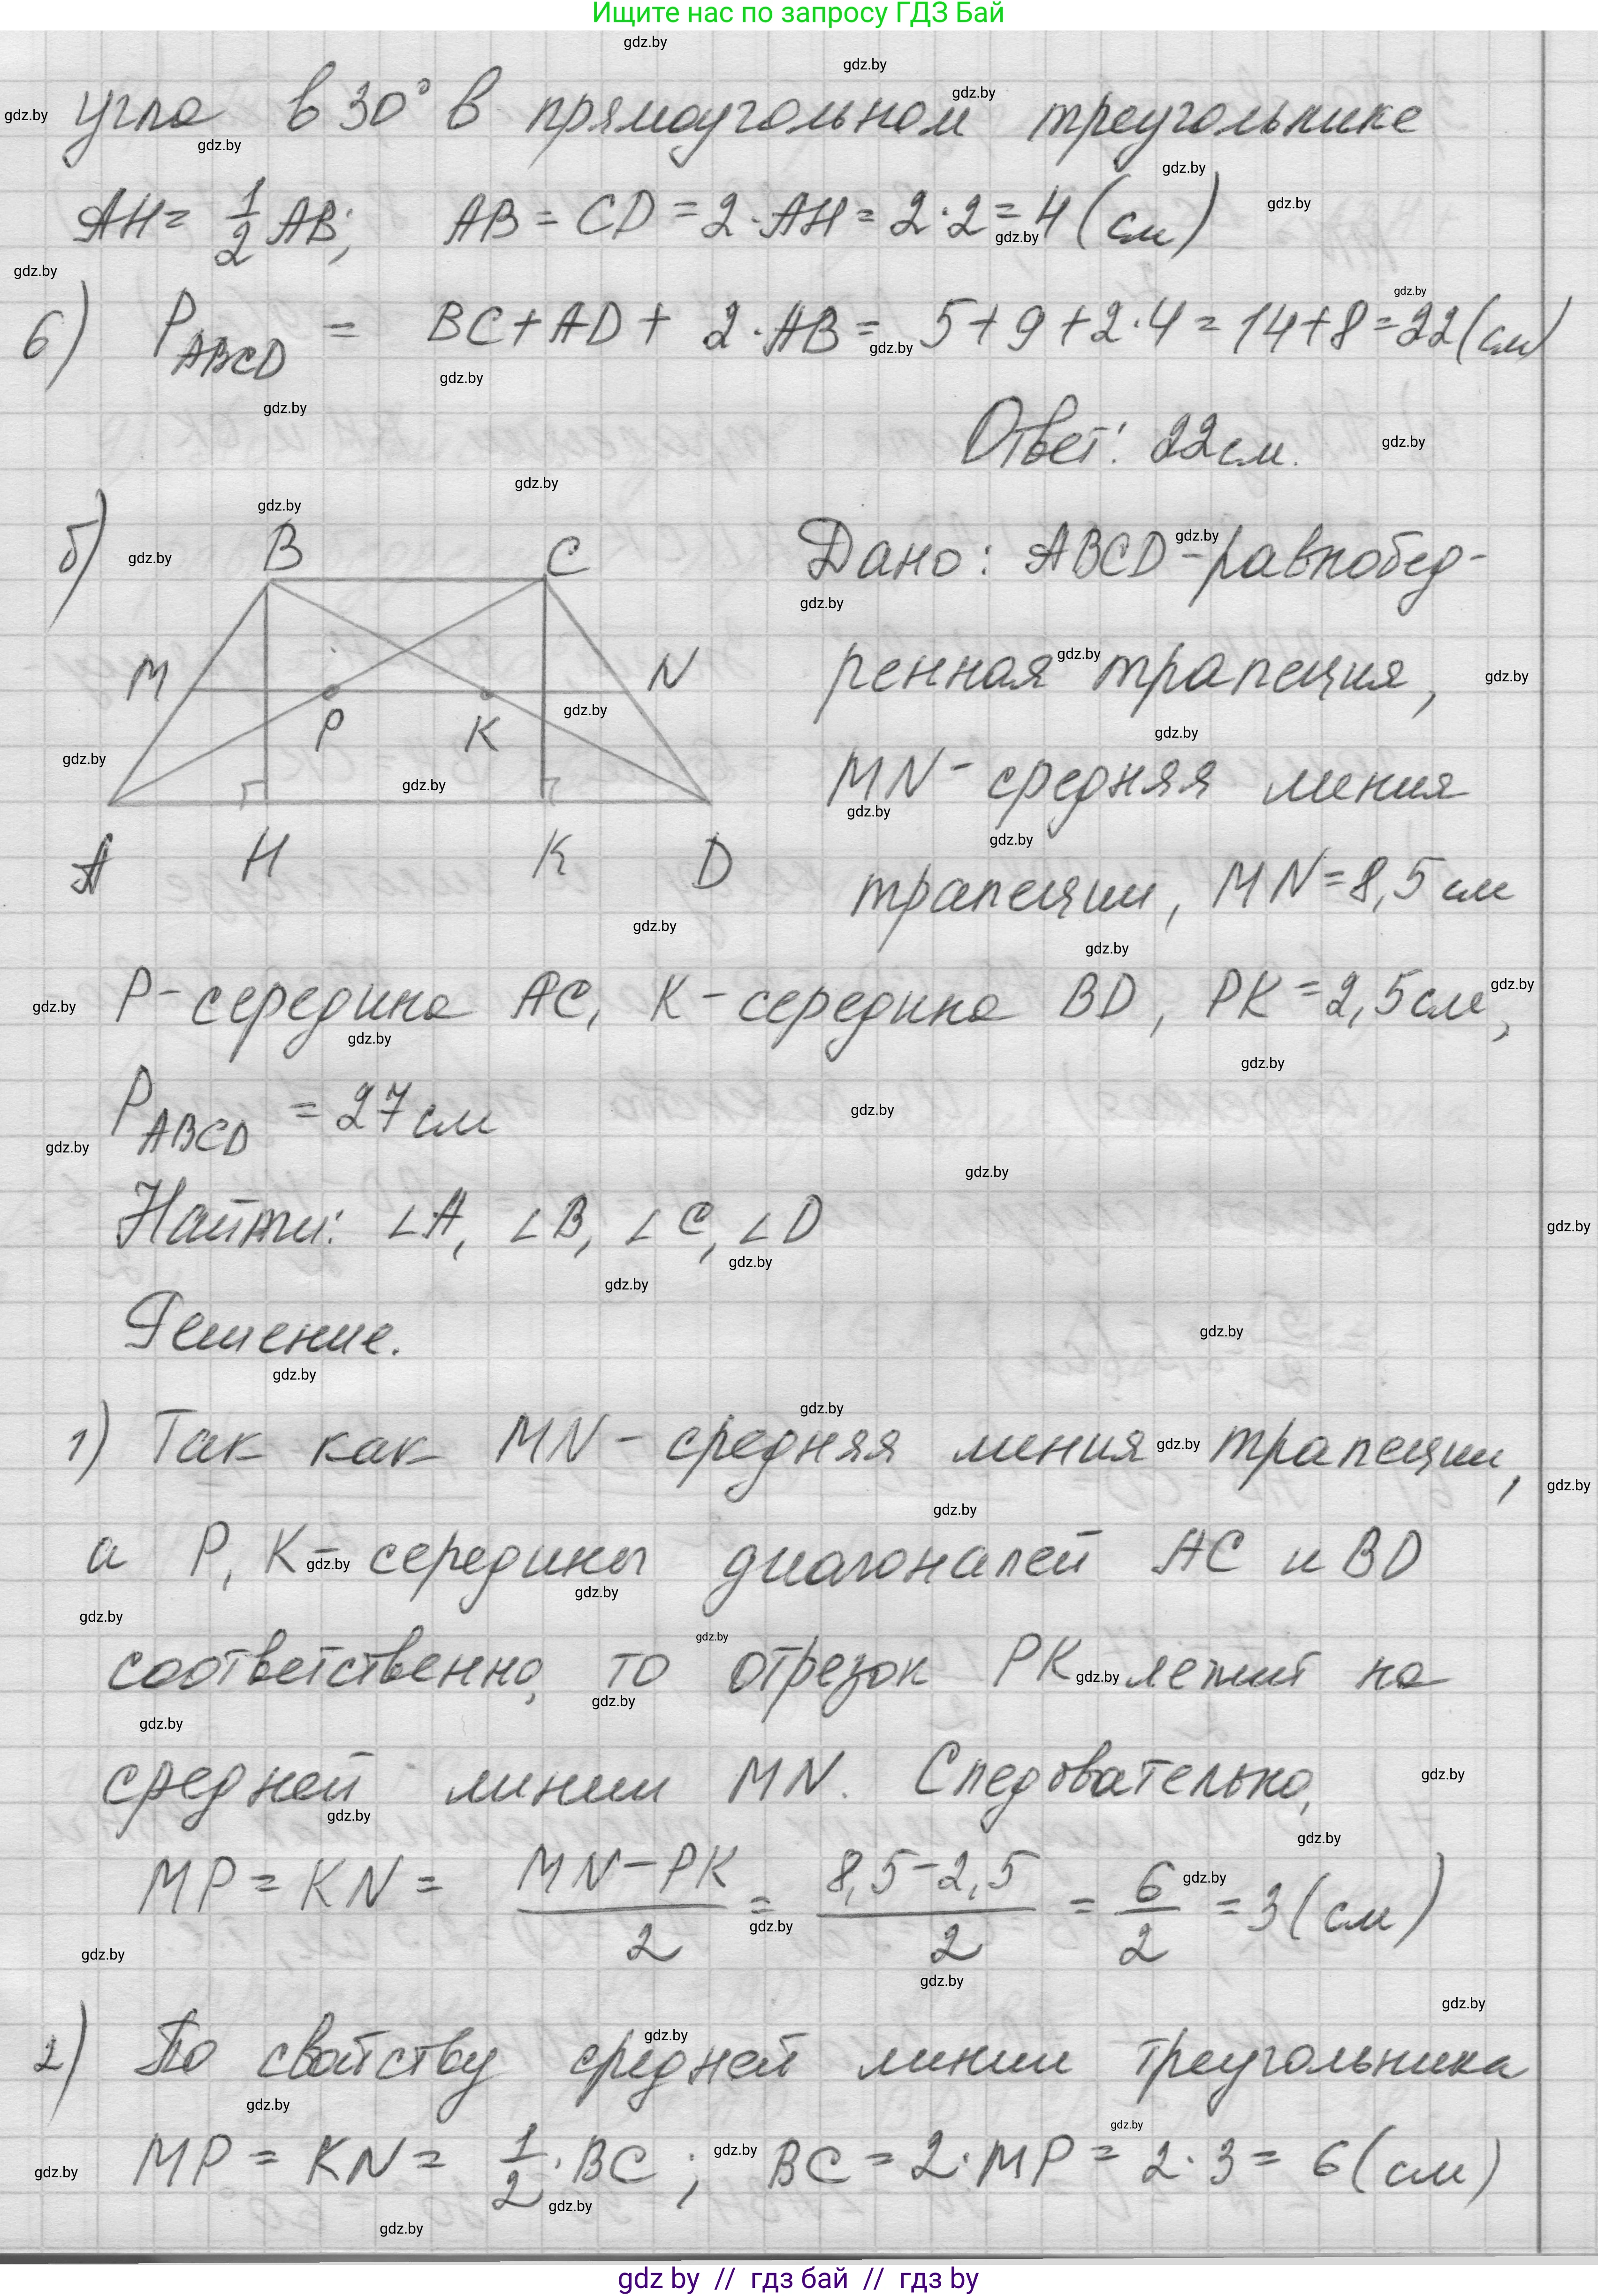 Ищите нас по запросу ГДЗ Бай
угла в 30° в прямоугольном треугольнике
AH = 1/2 AB; AB = CD = 2·AH = 2·2 = 4 (см)
6) P_ABCD = BC + AD + 2·AB = 5 + 9 + 2·4 = 14 + 8 = 22 (см)
Ответ: 22 см.
б)
B C
M N
P K
A H K D
Дано: ABCD - равнобед-
ренная трапеция,
MN - средняя линия
трапеции, MN = 8,5 см
P - середина AC, K - середина BD, PK = 2,5 см,
P_ABCD = 27 см
Найти: ∠A, ∠B, ∠C, ∠D
Решение.
1) Так как MN - средняя линия трапеции,
а P, K - середины диагоналей AC и BD
соответственно, то отрезок PK лежит на
средней линии MN. Следовательно,
MP = KN = (MN - PK)/2 = (8,5 - 2,5)/2 = 6/2 = 3 (см)
2) По свойству средней линии треугольника
MP = KN = 1/2 · BC; BC = 2·MP = 2·3 = 6 (см)
gdz by // гдз бай // гдз by